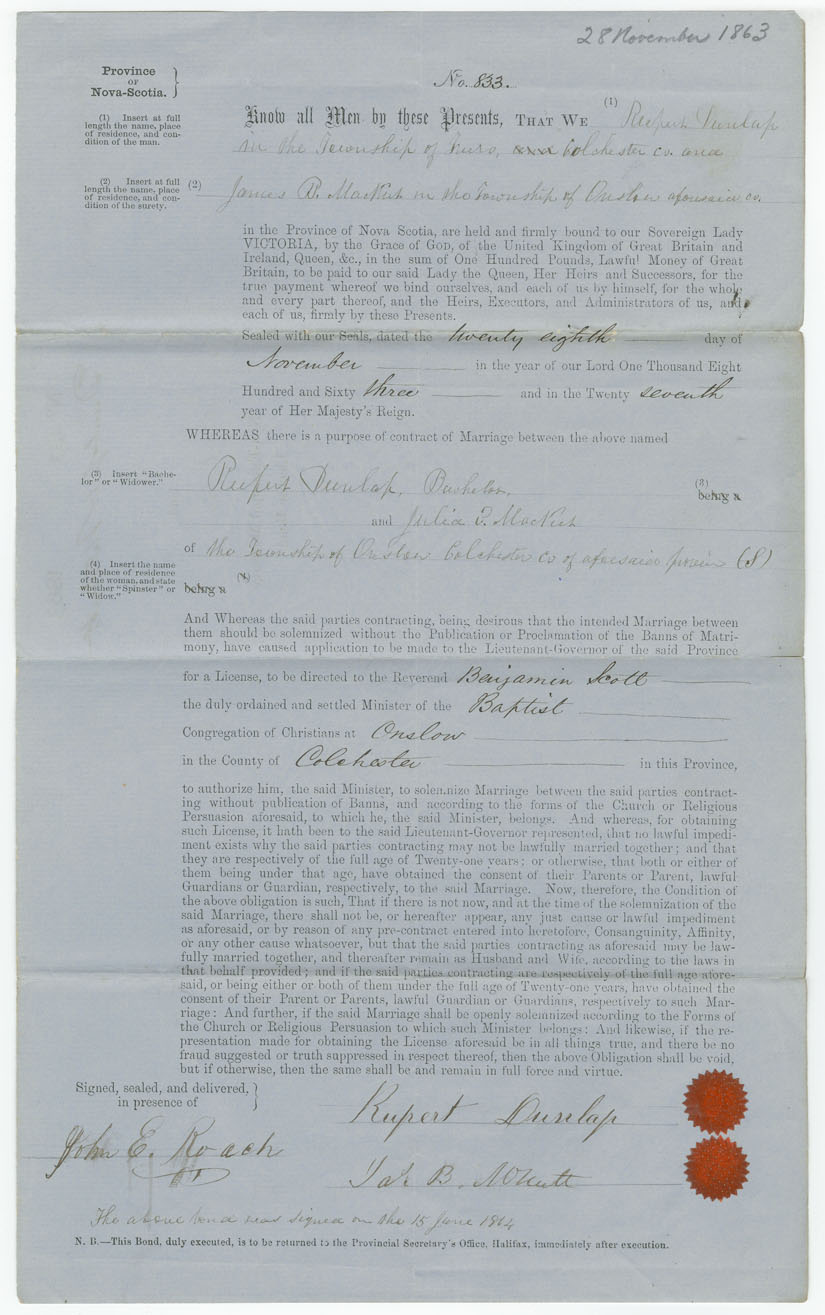 28 November 1863
Province
OF
Nova-Scotia.
No. 833.
(1) Insert at full
length the name, place
of residence, and con-
dition of the man.
Know all Men by these Presents, THAT WE (1) Rupert Dunlap
in the Township of Truro, Colchester co. and
(2) Insert at full
length the name, place
of residence, and con-
dition of the surety.
(2) James B. MacNutt in the Township of Onslow aforesaid co.
in the Province of Nova Scotia, are held and firmly bound to our Sovereign Lady
VICTORIA, by the Grace of GOD, of the United Kingdom of Great Britain and
Ireland, Queen, &c., in the sum of One Hundred Pounds, Lawful Money of Great
Britain, to be paid to our said Lady the Queen, Her Heirs and Successors, for the
true payment whereof we bind ourselves, and each of us by himself, for the whole
and every part thereof, and the Heirs, Executors, and Administrators of us, and
each of us, firmly by these Presents.
Sealed with our Seals, dated the twenty eighth day of
November in the year of our Lord One Thousand Eight
Hundred and Sixty three and in the Twenty seventh
year of Her Majesty's Reign.
WHEREAS there is a purpose of contract of Marriage between the above named
(3) Insert "Bache-
lor" or "Widower."
Rupert Dunlap, Bachelor, (3)
being a
and Julia MacNutt
of the Township of Onslow Colchester co of aforesaid provin (S)
(4) Insert the name
and place of residence
of the woman, and state
whether "Spinster" or
"Widow."
(4)
being a
And Whereas the said parties contracting, being desirous that the intended Marriage between
them should be solemnized without the Publication or Proclamation of the Banns of Matri-
mony, have caused application to be made to the Lieutenant-Governor of the said Province
for a License, to be directed to the Reverend Benjamin Scott
the duly ordained and settled Minister of the Baptist
Congregation of Christians at Onslow
in the County of Colchester in this Province,
to authorize him, the said Minister, to solemnize Marriage between the said parties contract-
ing without publication of Banns, and according to the forms of the Church or Religious
Persuasion aforesaid, to which he, the said Minister, belongs. And whereas, for obtaining
such License, it hath been to the said Lieutenant-Governor represented, that no lawful impedi-
ment exists why the said parties contracting may not be lawfully married together; and that
they are respectively of the full age of Twenty-one years; or otherwise, that both or either of
them being under that age, have obtained the consent of their Parents or Parent, lawful
Guardians or Guardian, respectively, to the said Marriage. Now, therefore, the Condition of
the above obligation is such, That if there is not now, and at the time of the solemnization of the
said Marriage, there shall not be, or hereafter appear, any just cause or lawful impediment
as aforesaid, or by reason of any pre-contract entered into heretofore, Consanguinity, Affinity,
or any other cause whatsoever, but that the said parties contracting as aforesaid may be law-
fully married together, and thereafter remain as Husband and Wife, according to the laws in
that behalf provided; and if the said parties contracting are respectively of the full age afore-
said, or being either or both of them under the full age of Twenty-one years, have obtained the
consent of their Parent or Parents, lawful Guardian or Guardians, respectively to such Mar-
riage: And further, if the said Marriage shall be openly solemnized according to the Forms of
the Church or Religious Persuasion to which such Minister belongs: And likewise, if the re-
presentation made for obtaining the License aforesaid be in all things true, and there be no
fraud suggested or truth suppressed in respect thereof, then the above Obligation shall be void,
but if otherwise, then the same shall be and remain in full force and virtue.
Signed, sealed, and delivered,
in presence of
Rupert Dunlap
John E. Roach
Jas B. McNutt
The above bond was signed on the 15 June 1864
N. B.—This Bond, duly executed, is to be returned to the Provincial Secretary's Office, Halifax, immediately after execution.